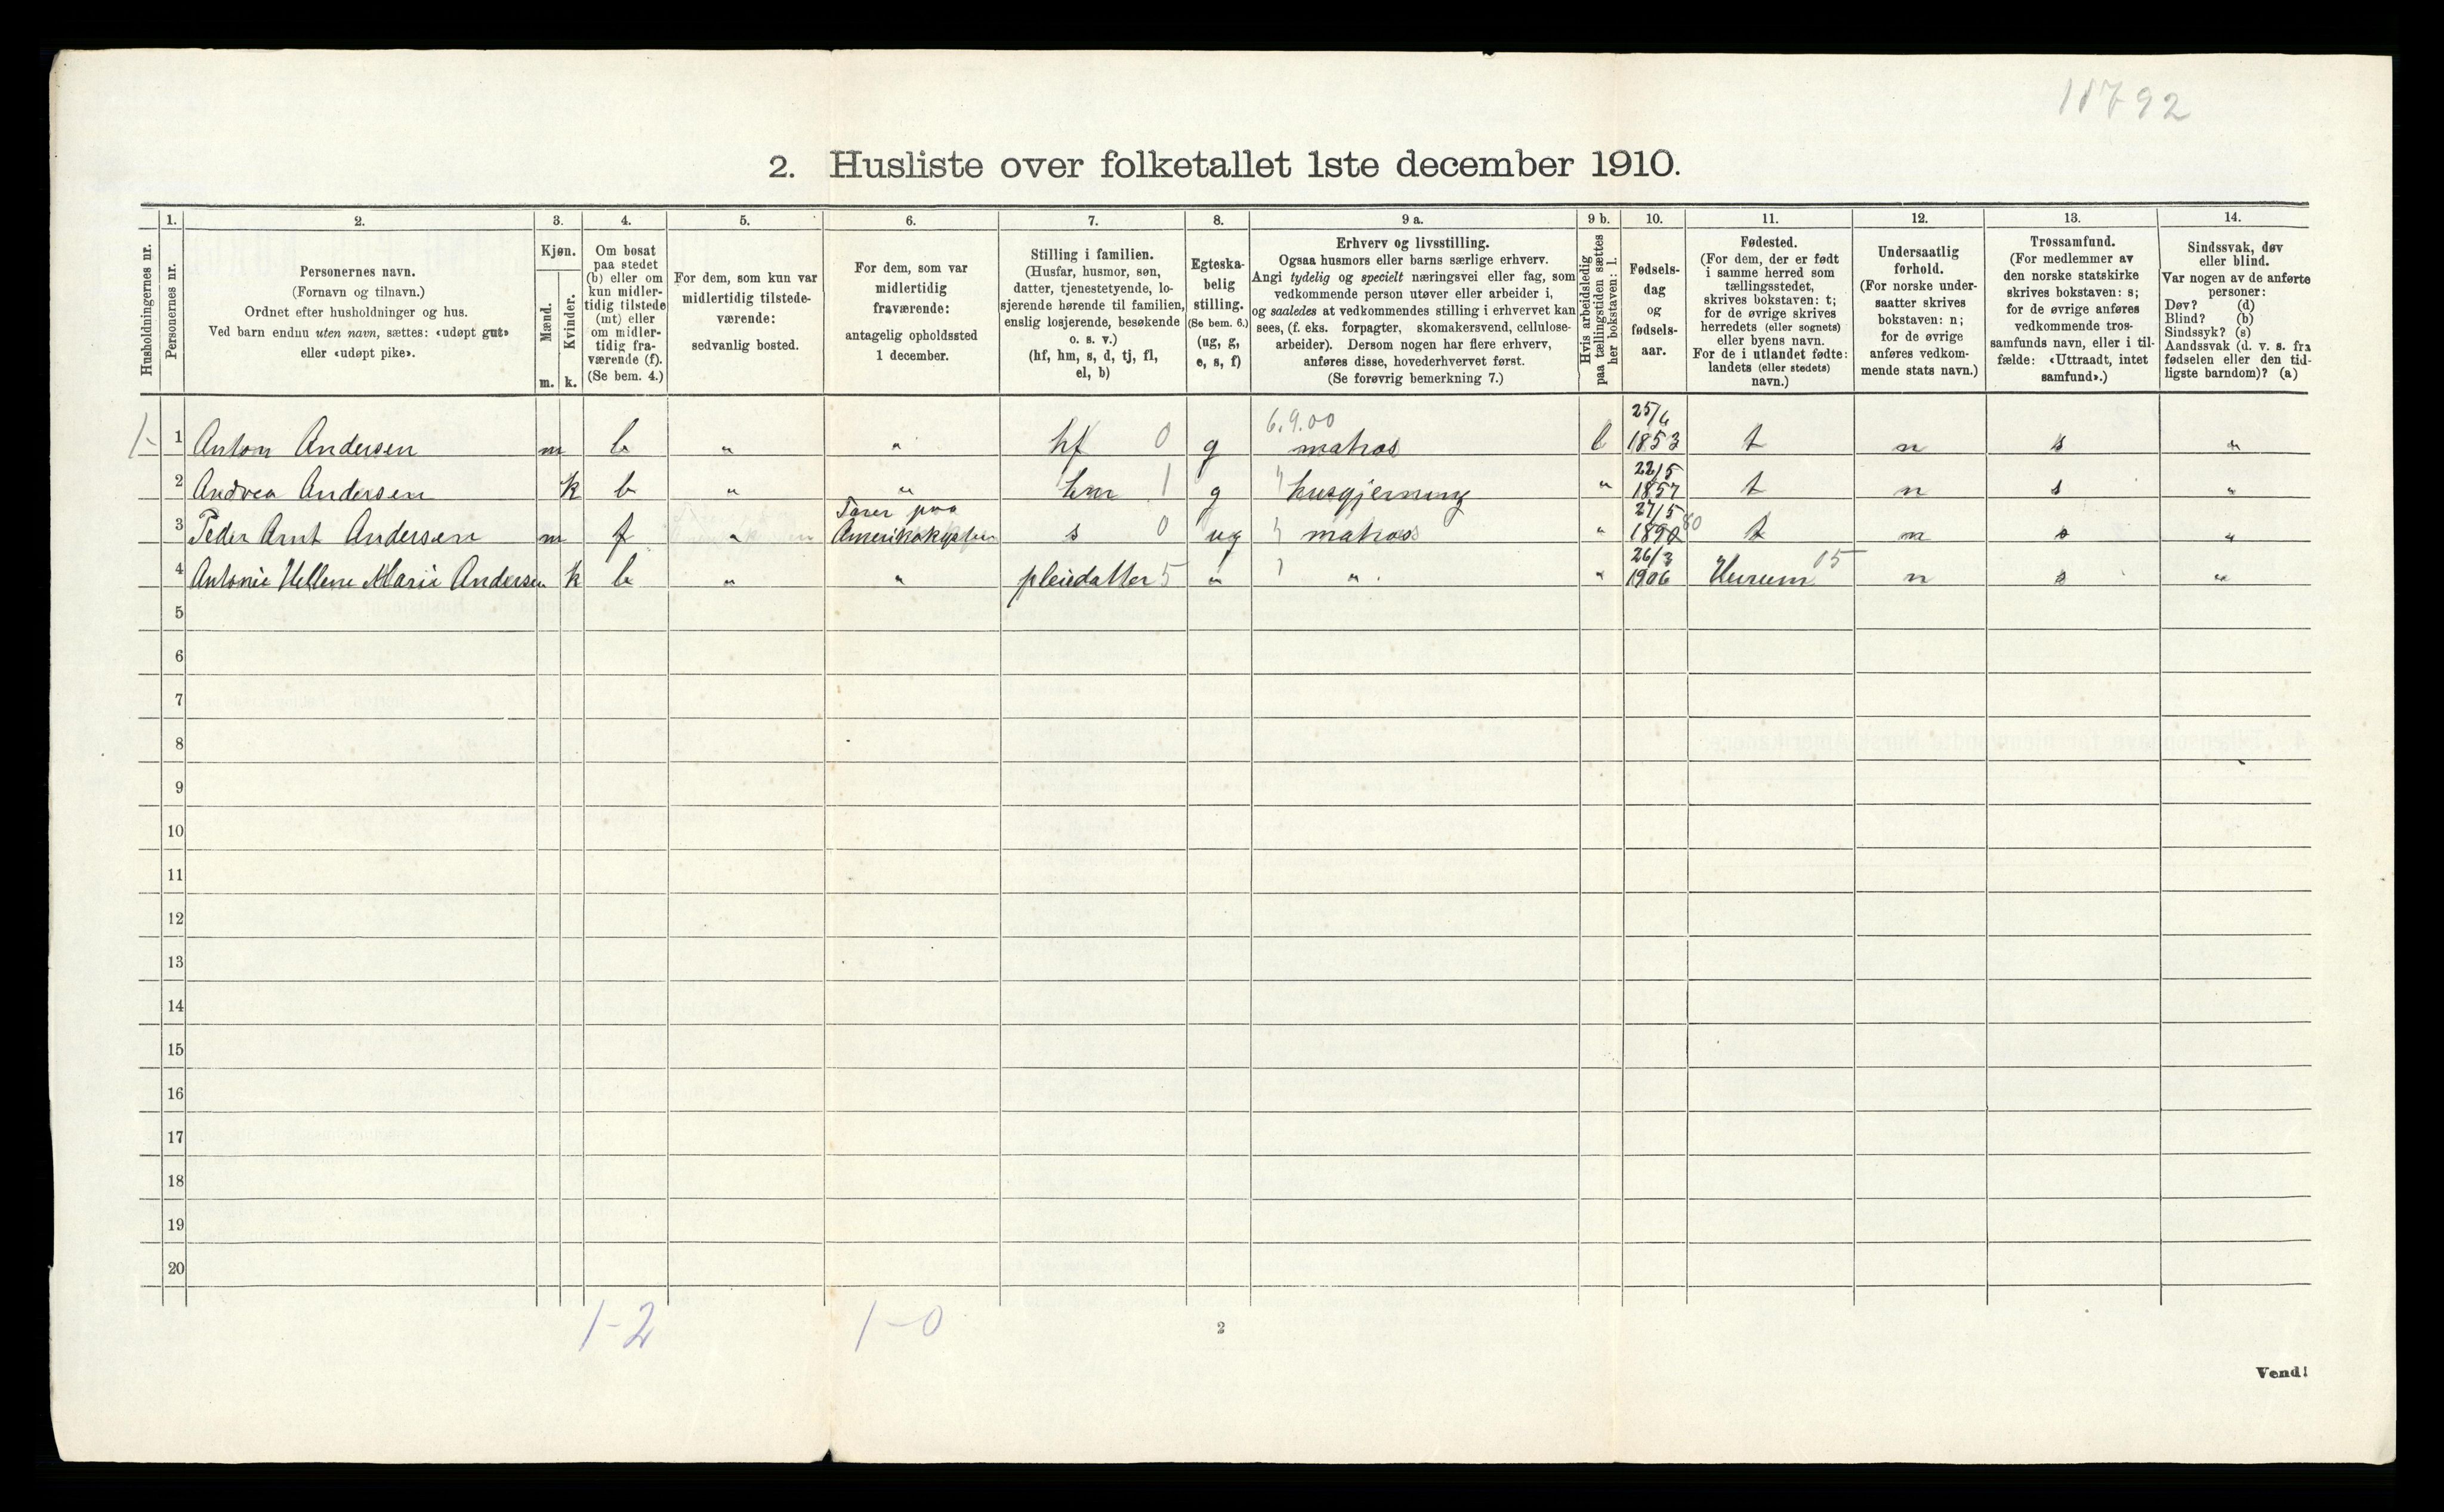 11792
2. Husliste over folketallet 1ste december 1910.
Husholdningernes nr.
1.
Personernes nr.
2.
Personernes navn.
(Fornavn og tilnavn.)
Ordnet efter husholdninger og hus.
Ved barn endnu uten navn, sættes: «udøpt gut»
eller «udøpt pike».
3.
Kjøn.
Mænd.
Kvinder.
m. k.
4.
Om bosat
paa stedet
(b) eller om
kun midler-
tidig tilstede
(mt) eller
om midler-
tidig fra-
værende (f).
(Se bem. 4.)
5.
For dem, som kun var
midlertidig tilstede-
værende:
sedvanlig bosted.
6.
For dem, som var
midlertidig
fraværende:
antagelig opholdssted
1 december.
7.
Stilling i familien.
(Husfar, husmor, søn,
datter, tjenestetyende, lo-
sjerende hørende til familien,
enslig losjerende, besøkende
o. s. v.)
(hf, hm, s, d, tj, fl,
el, b)
8.
Egteska-
belig
stilling.
(Se bem. 6.)
(ug, g,
e, s, f)
9 a.
Erhverv og livsstilling.
Ogsaa husmors eller barns særlige erhverv.
Angi tydelig og specielt næringsvei eller fag, som
vedkommende person utøver eller arbeider i,
og saaledes at vedkommendes stilling i erhvervet kan
sees, (f. eks. forpagter, skomakersvend, cellulose-
arbeider). Dersom nogen har flere erhverv,
anføres disse, hovederhvervet først.
(Se forøvrig bemerkning 7.)
9 b.
Hvis arbeidsledig
paa tællingstiden sættes
her bokstaven: l.
10.
Fødsels-
dag
og
fødsels-
aar.
11.
Fødested.
(For dem, der er født
i samme herred som
tællingsstedet,
skrives bokstaven: t;
for de øvrige skrives
herredets (eller sognets)
eller byens navn.
For de i utlandet fødte:
landets (eller stedets)
navn.)
12.
Undersaatlig
forhold.
(For norske under-
saatter skrives
bokstaven: n;
for de øvrige
anføres vedkom-
mende stats navn.)
13.
Trossamfund.
(For medlemmer av
den norske statskirke
skrives bokstaven: s;
for de øvrige anføres
vedkommende tros-
samfunds navn, eller i til-
fælde: «Uttraadt, intet
samfund».)
14.
Sindssvak, døv
eller blind.
Var nogen av de anførte
personer:
Døv? (d)
Blind? (b)
Sindssyk? (s)
Aandssvak (d. v. s. fra
fødselen eller den tid-
ligste barndom)? (a)
6.9.00 25/6
1 Anton Andersen m b " " hf 0 g matros l 1853 t n s "
22/5
2 Andrea Andersen k b " " hm 1 g husgjerning " 1857 t n s "
Farer paa 27/5
3 Peder Arnt Andersen m f " Amerikakysten s 0 ug matros " 1890 80 t n s "
26/3
4 Antonie Hellene Marie Andersen k b " " pleiedatter 5 " " " 1906 Hurum 05 n s "
5
6
7
8
9
10
11
12
13
14
15
16
17
18
19
20
1-2 1-0
2
Vend!